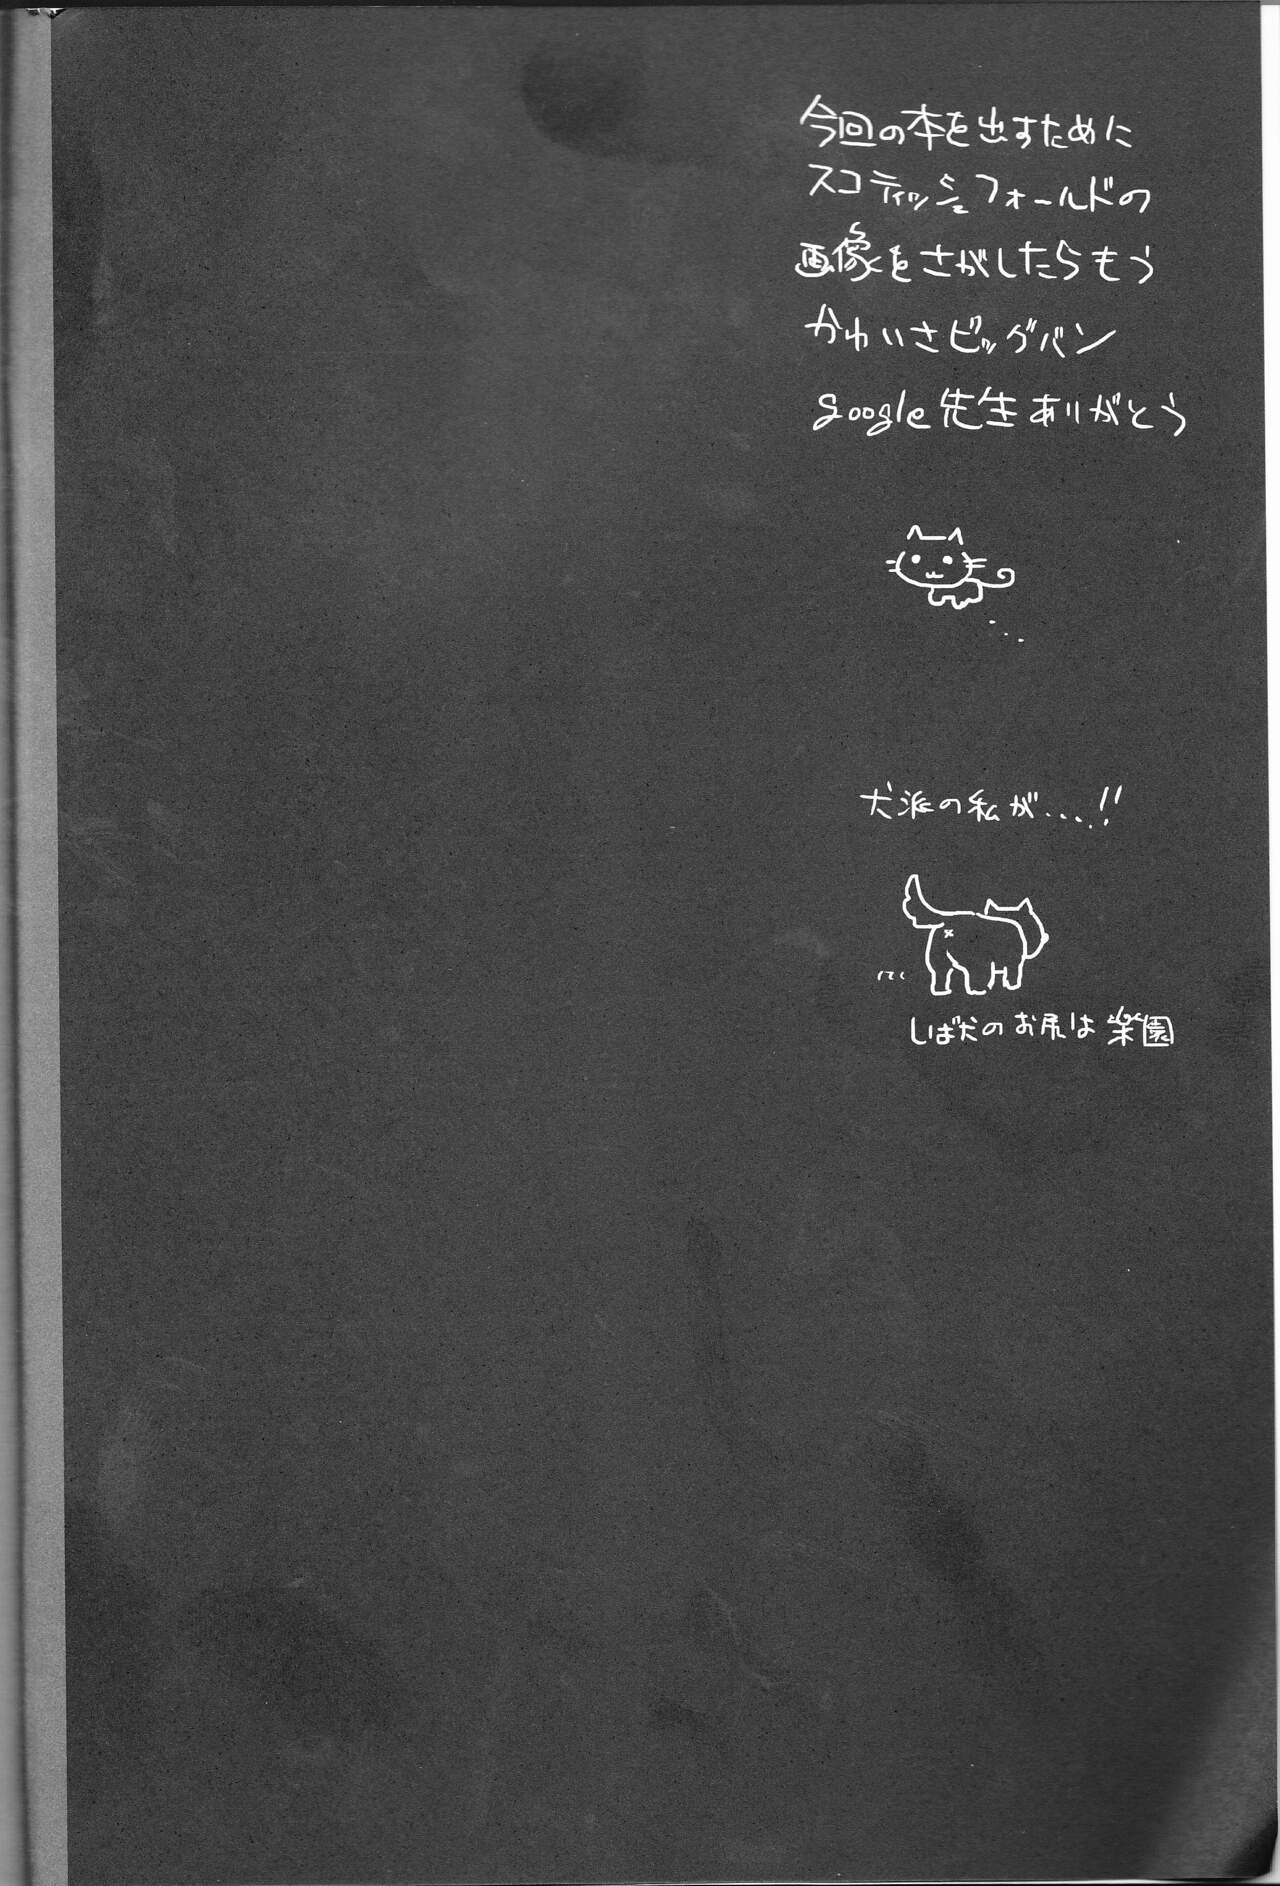 今回の本を出すために
スコティッシュフォールドの
画像をさがしたらもう
かわいさビッグバン
google先生ありがとう
犬派の私が...!!
てく
しば犬のお尻は楽園